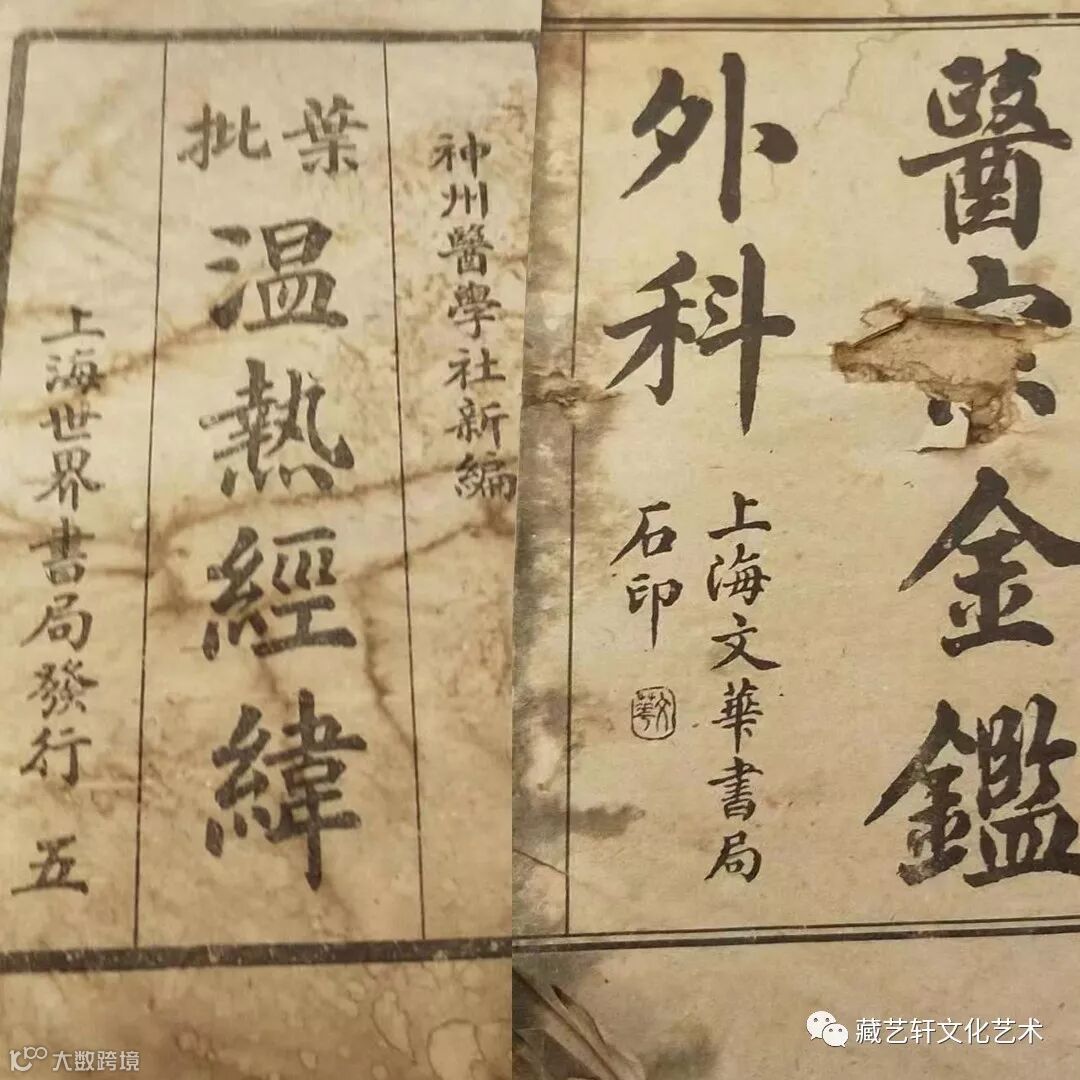 神州醫學社新編
葉批
温熱經緯
上海世界書局發行 五
醫宗金鑑
外科
上海文華書局
石印
大数跨境
藏艺轩文化艺术